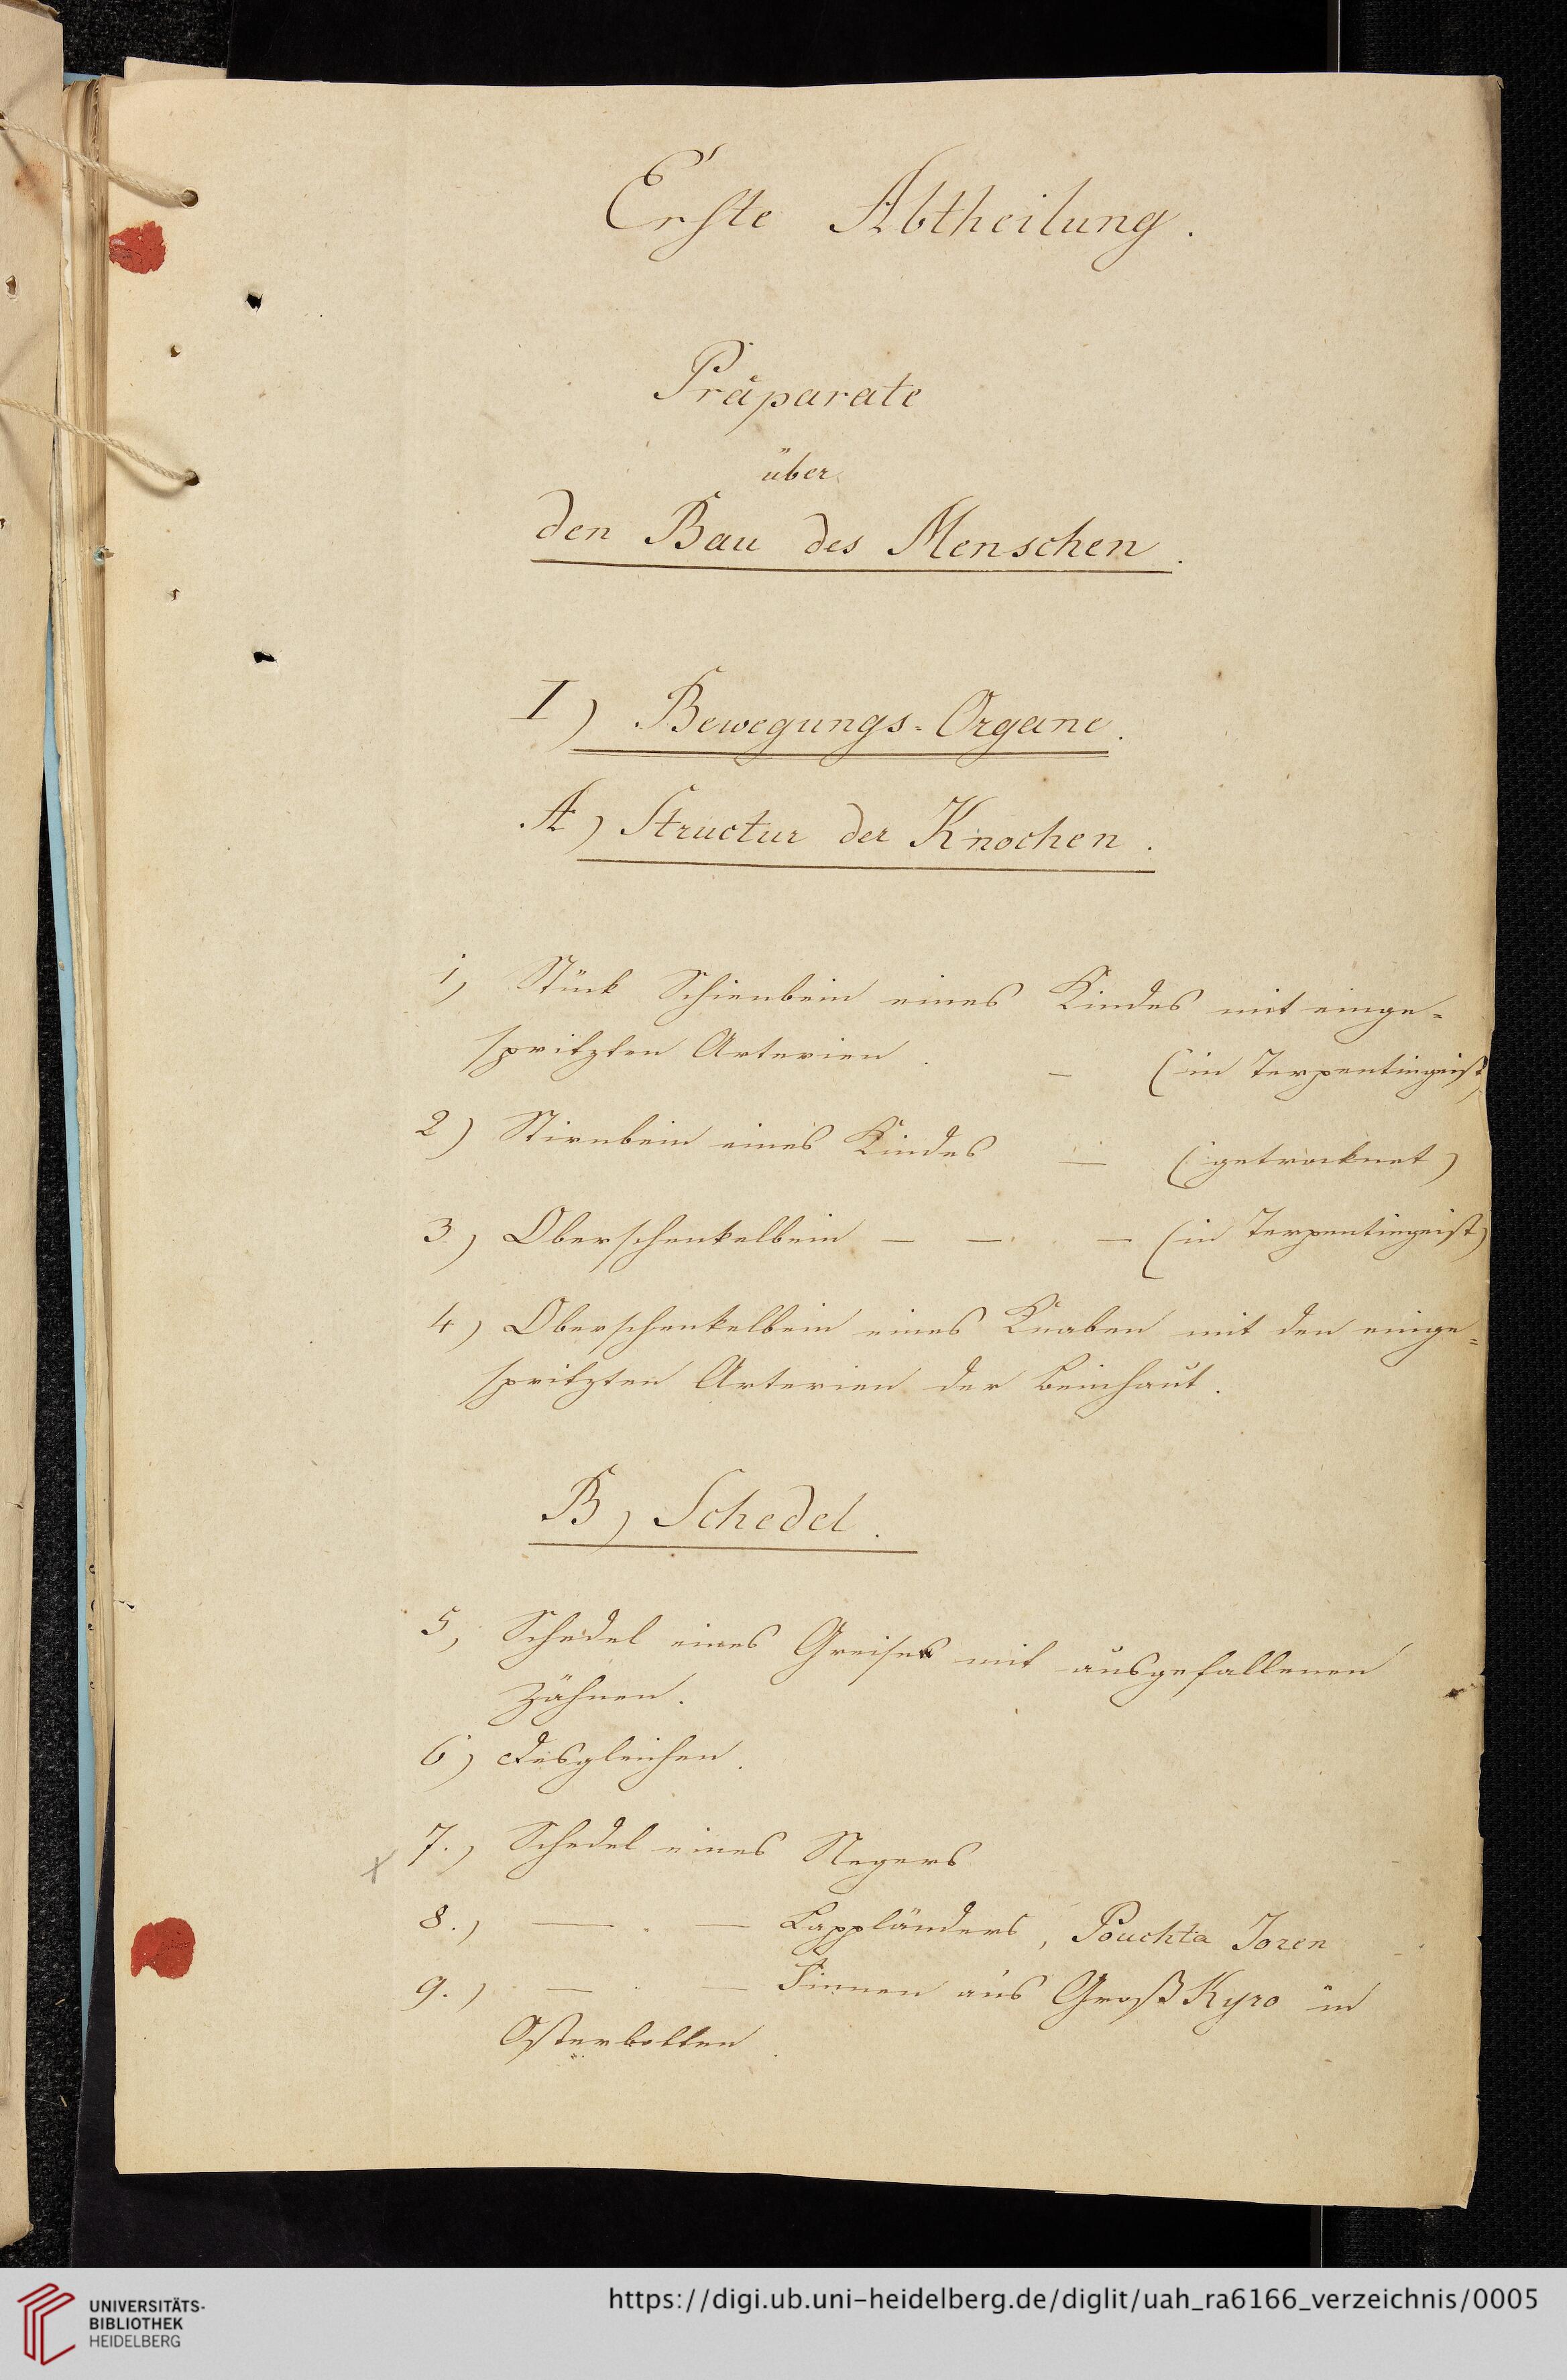 Erste Abtheilung.
Präparate
über
den Bau des Menschen.
I) Bewegungs-Organe.
A) Structur der Knochen.
1) Stück Schienbein eines Kindes mit einge=
spritzten Arterien. — (in Terpentingeist)
2) Stirnbein eines Kindes — (getrocknet)
3) Oberschenkelbein — — — (in Terpentingeist)
4) Oberschenkelbein eines Knaben mit den einge=
spritzten Arterien der Beinhaut.
B) Schedel.
5) Schedel eines Greises mit ausgefallenen
Zähnen.
6) Desgleichen.
7.) Schedel eines Negers
8.) — . — Lappländers, Pouchta Joren
9.) — . — Finnen aus Groß Kyro in
Osterbotten.
UNIVERSITÄTS-
BIBLIOTHEK
HEIDELBERG
https://digi.ub.uni-heidelberg.de/diglit/uah_ra6166_verzeichnis/0005